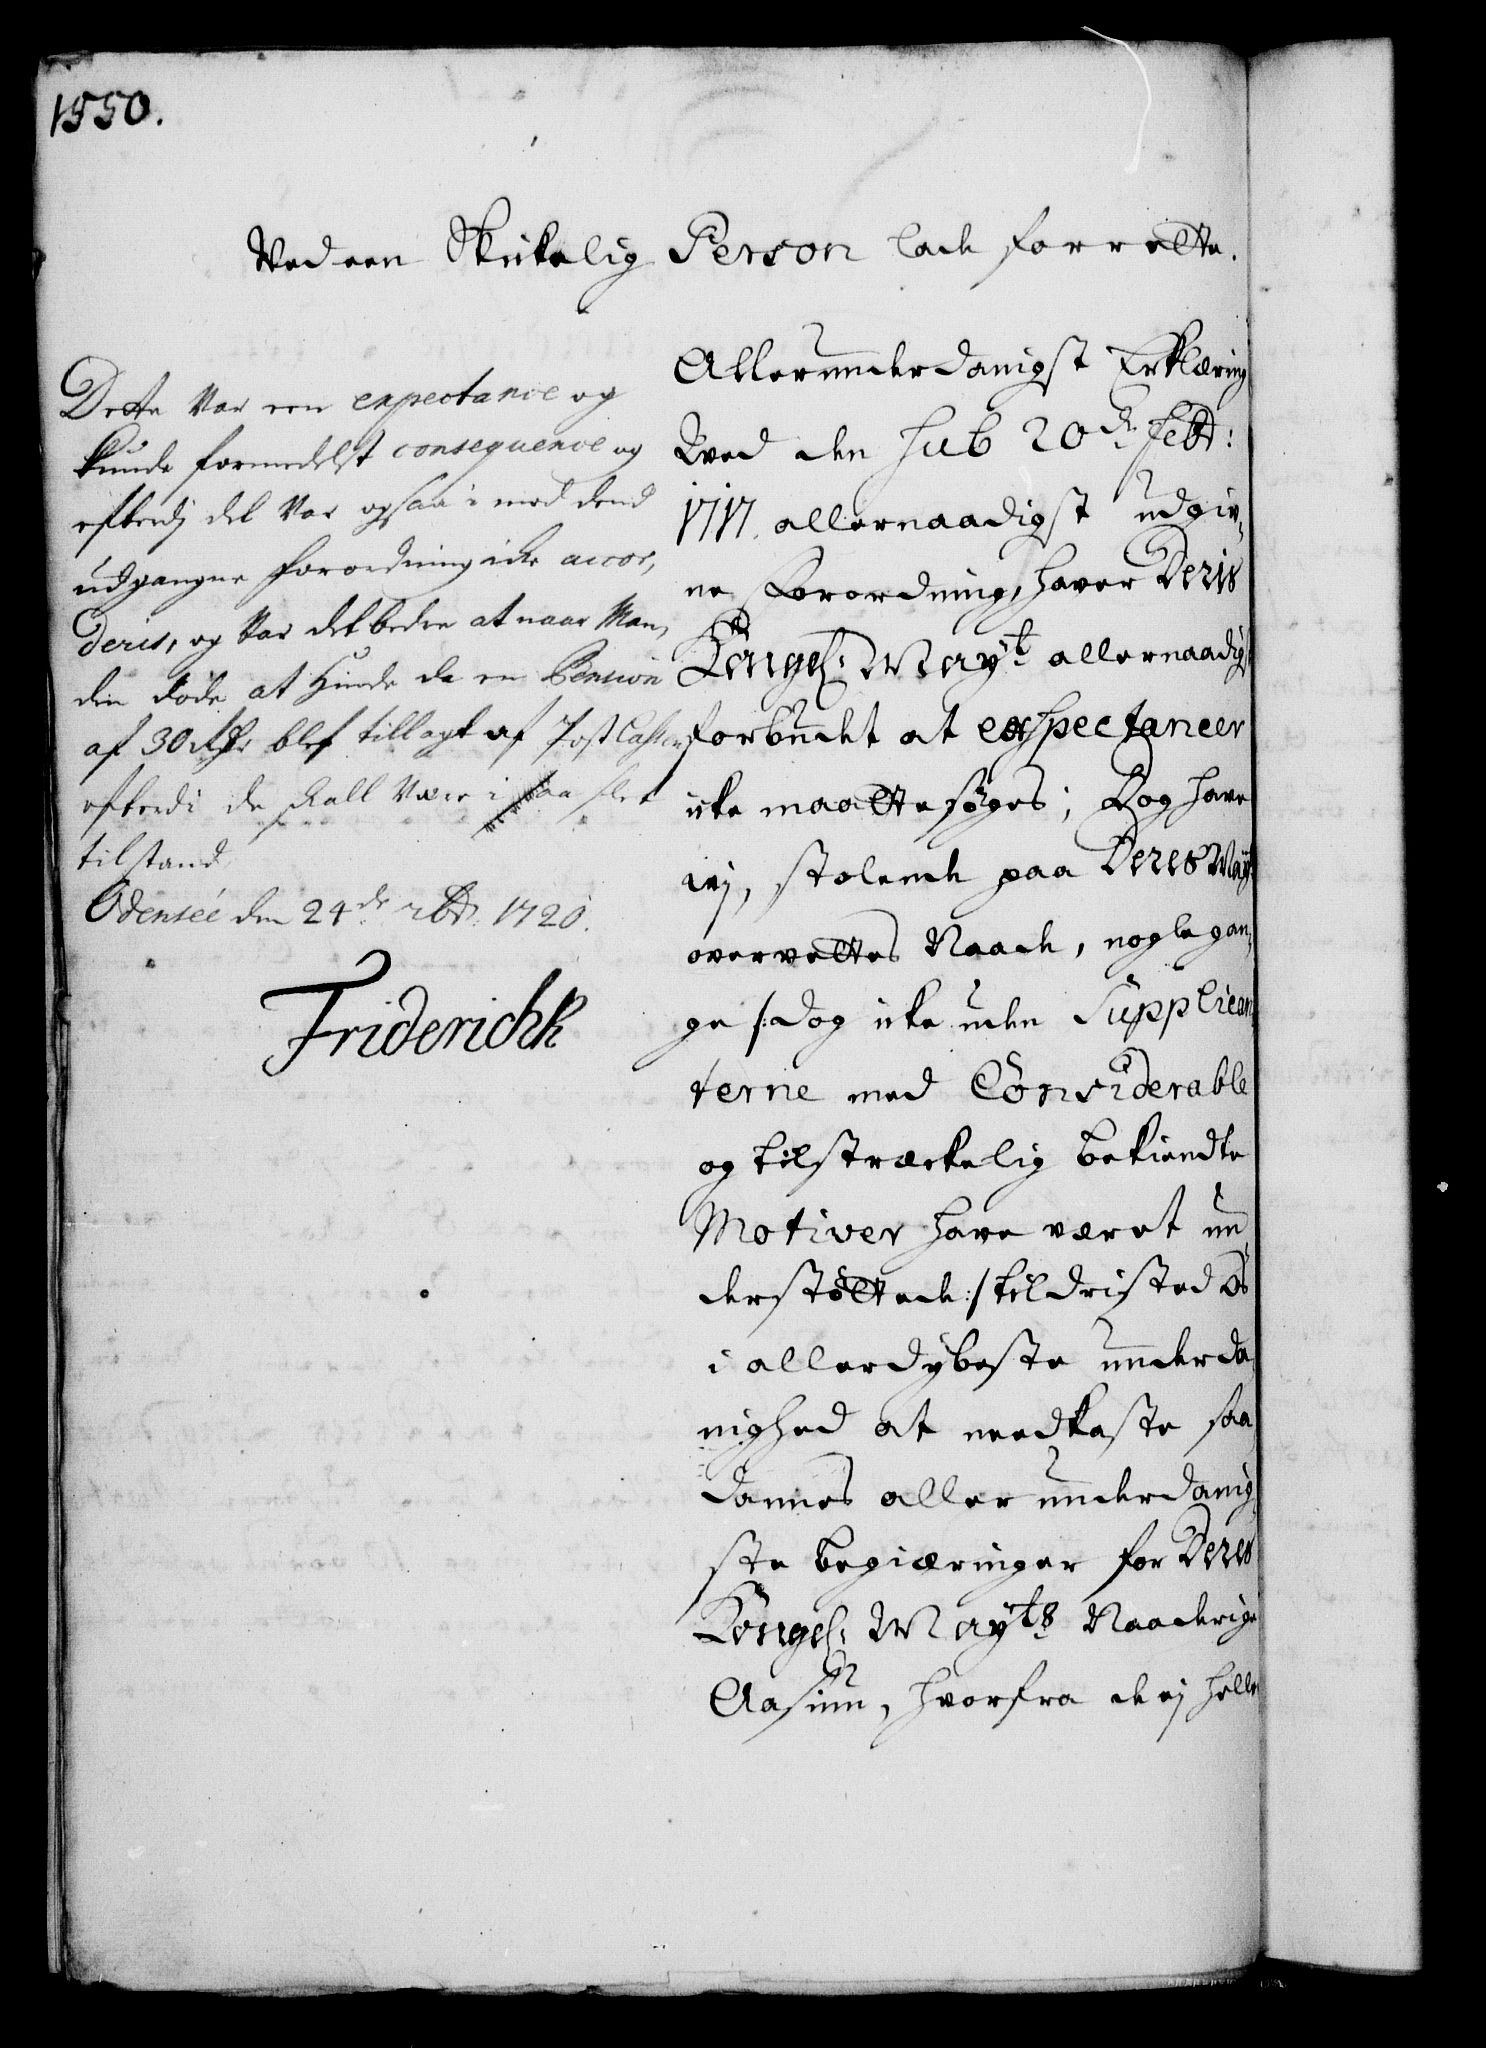 1550.
Ved een Skikelig Person lade forrette.
Dette var een expectance og
kunde formedelst consequence og
efterdj det var ogsaa i mod dend
udgangne forordning icke accor,
deris, og var det bedre at naar Man,
den døde at Hinde da en Pension
af 30 rdr blef tillagt af Post Cassen
efterdi de skall være i saa slet
tilstand
Odensee den 24de 1720.
Friderich R
Allerunderdanigst Erklæring
Ved den sub 20de Febr:
1717 allernaadigst udgiv,
ne Forordning, haver Deris
Kongel: Mayt allernaadigst
forbudet at exspectancer
icke maatte søges; Dog have
vej, stolende paa Deres Mayts
overvettes Naade, nogle gan,
ge /: dog icke uden Supplican
terne med Considerable
og tilstreckelig bekiendte
Motiver have været un
derstøttede :/ tildristed os
i allerdybeste underda
nighed at needkaste saa
dannes aller underdanig
ste begiæringer for Deres
Kongel: Mayts Naaderige
Aasiun, hvorfra de ej heller